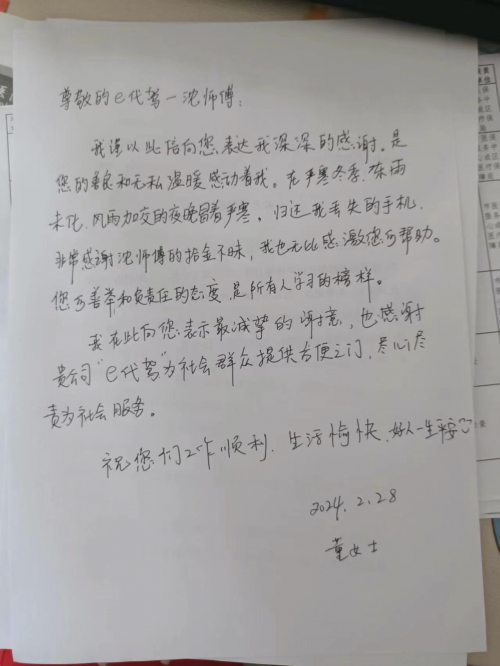 尊敬的e代驾一沈师傅：
我谨以此信向您表达我深深的感谢。是
您的善良和无私温暖感动着我。在严寒冬季，冻雨
未化，风雨加交的夜晚冒着严寒。归还我丢失的手机，
非常感谢沈师傅的拾金不昧，我也无比感激您的帮助。
您的善举和负责任的态度，是所有人学习的榜样。
我在此向您表示最诚挚的谢意，也感谢
贵公司"e代驾"为社会群众提供方便之门，尽心尽
责为社会服务。
祝您们工作顺利，生活愉快，好人一生平安
2024.2.28
董女士